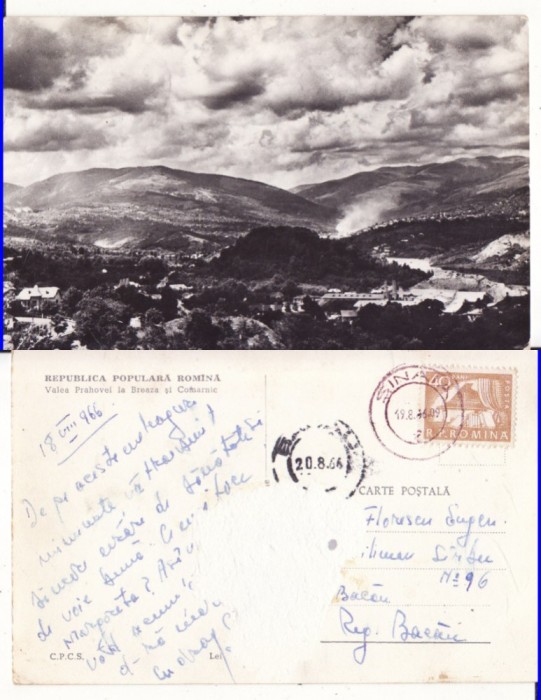 REPUBLICA POPULARĂ ROMÎNĂ
Valea Prahovei la Breaza și Comarnic
18 VIII 966
De pe aceste meleaguri
minunate vă transmit
sincere urări de sănătate și
de voie bună. Ce mai face
Margareta?
vă
cu drag
C.P.C.S.
Lei
SINAIA
19.8.66.09
20.8.66
POSTA
R.P.ROMINA
CARTE POȘTALĂ
Florescu Eugen
Nº 96
Bacău
Reg. Bacău